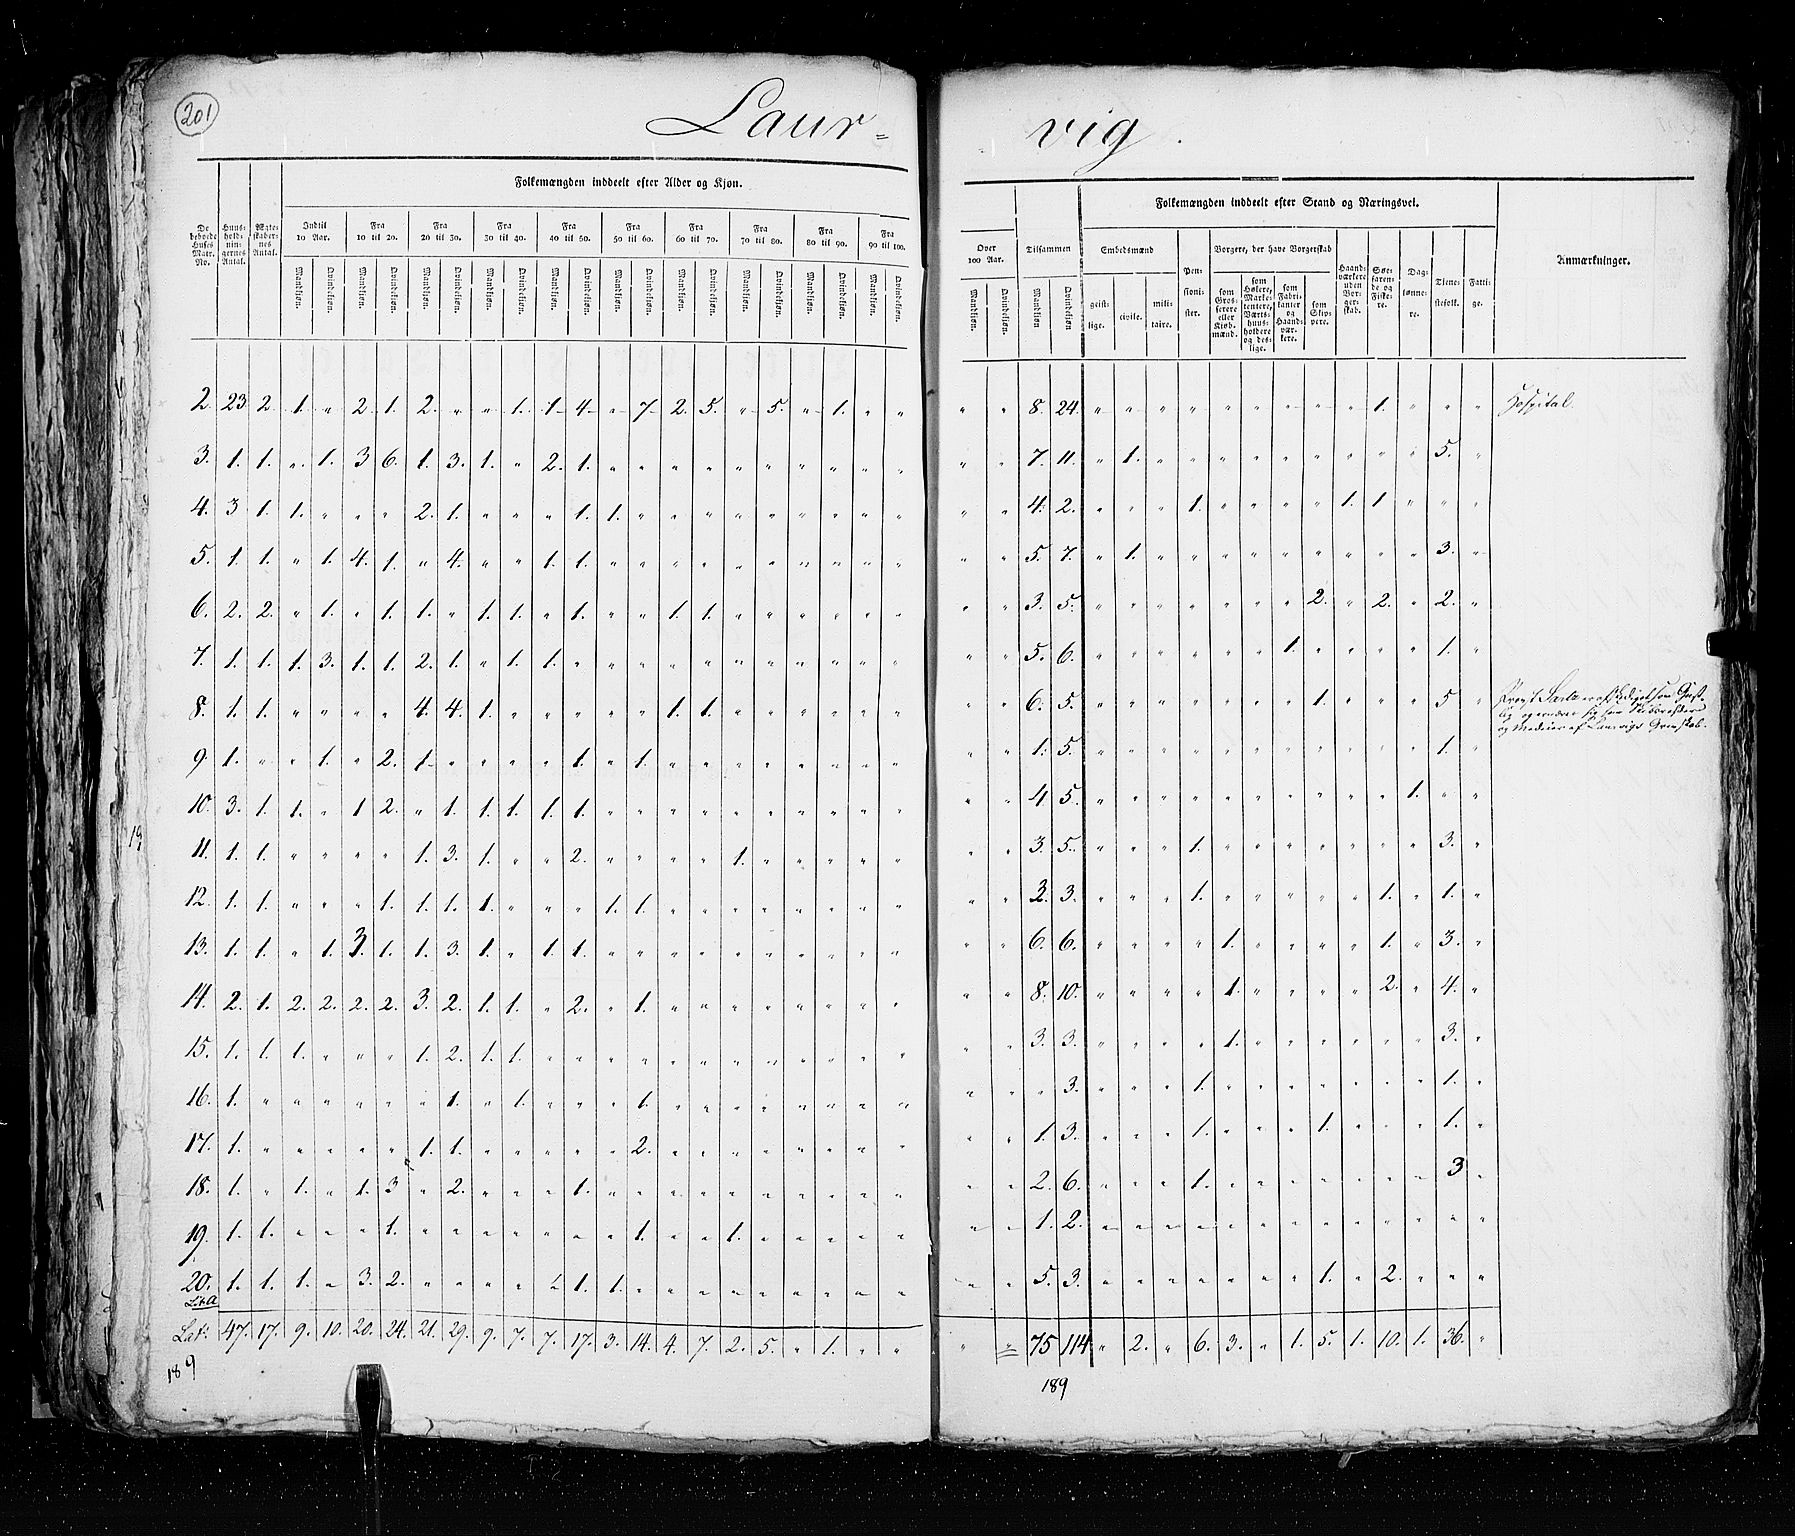 201
Laur=
vig.
Folkemængden inddeelt efter Alder og Kjøn.
Folkemængden inddeelt efter Stand og Næringsvei.
De beboede Huses Matr. No.
Huus-hold-nin-gernes Antal.
Ægte-skaber-nes Antal.
Indtil 10 Aar.
Fra 10 til 20.
Fra 20 til 30.
Fra 30 til 40.
Fra 40 til 50.
Fra 50 til 60.
Fra 60 til 70.
Fra 70 til 80.
Fra 80 til 90.
Fra 90 til 100.
Over 100 Aar.
Tilsammen
Mandkjøn. Qvindekjøn.
Embedsmænd
geist-lige. civile. mili-taire.
Pen-sioni-ster.
Borgere, der have Borgerskab
som Gros-serere eller Kjøb-mænd.
som Høkere, Marke-tentere, Værts-huus-holdere og des-lige.
som Fabri-kanter og Haand-vær-kere.
som Skip-pere.
Haand-værkere uden Bor-ger-skab.
Søe-faren-de og Fiske-re.
Dag-lønne-re.
Tiene-stefolk.
Fatti-ge.
Anmærkninger.
2. 23 2 1. " 2. 1. 2. " " 1. 1 4 " 7 2. 5. " 5. " 1. " " " " 8. 24. " " " " " " " " " 1. " " " Hospital.
3. 1. 1. " 1. 3 6. 1. 3. 1. " 2. 1. " " " " " " " " " " " " 7. 11. " 1. " " " " " " " " " 5. "
4. 3 1. 1. " " " 2. 1. " " " 1. 1. " " " " " " " " " " " 4. 2. " " " 1. " " " " 1. 1. " " "
5. 1. 1. " 1. 4. 1. " 4. " " 1. 1. " " " " " " " " " " " " 5. 7. " 1. " " " " " " " " " 3. "
6. 2. 2. " 1. " 1. 1. " 1. 1. " 1. " " 1. 1. " " " " " " " " 3. 5. " " " " " " " 2. " 2. " 2. "
7. 1. 1. 1. 3. 1. 1. 2. 1. " 1. 1. " " " " " " " " " " " " " 5. 6. " " " " " " 1. " " " " 1. "
8. 1. 1. " " " " 4. 4. 1. " " " " " 1. 1. " " " " " " " " 6. 5. " " " " " " " 1. " " " 5 "
9. 1. " " 1. " 2. 1. " " " " 1. " 1. " " " " " " " " " " 1. 5. " " " " " " " " " " " 1. "
10. 3. 1. 1. " 1 2. " 1. 1. 1. 1. 1. " " " " " " " " " " " " 4 5. " " " " " " " " " " 1. " "
11. 1. 1. " " " " 1. 3. 1. " " 2. " " " " 1. " " " " " " " 3. 5. " " " 1. " " " " " " " 3. "
12. 1. 1. " " " 1. 1. 1. 1. " " " 1. 1. " " " " " " " " " " 3. 3. " " " 1. " " " " " 1. " 1. "
13. 1. 1. " 1. 3. 1. 1. 3. 1. " 1. 1. " " " " " " " " " " " " 6. 6. " " " " 1. " " " " 1. " 3. "
14. 2. 1. 2. 2. 2. 2. 3. 2. 1. 1. " 2. " 1. " " " " " " " " " " 8. 10. " " " " 1. " " " " 2. " 4. "
15. 1. 1. 1. " " " 1. 2. 1. 1. " " " " " " " " " " " " " " 3. 3. " " " " 1. " " " " " " 3. "
16. 1. " " " " " " 1. " 1. " " " 1. " " " " " " " " " " " 3. " " " 1. " " " " " " " 1. "
17. 1. " " " " " 1. 1. " " " " " 2. " " " " " " " " " " 1. 3. " " " 1. " " " 1. " " " 1. "
18. 1. " 1. " 1. 3 " 2. " " " 1. " " " " " " " " " " " " 2. 6. " " " 1. " " " " " " " 3 "
19. 1. 1. " " " 1. " " " " " " " 1. " " 1. " " " " " " " 1. 2. " " " " " " " " " " " " "
20. Litr. A 1. 1. 1. " 3. 2. " " " " " 1. 1. " " " " " " " " " " " 5. 3. " " " " " " " 1. " 2. " " "
Lats. 47. 17. 9. 10. 20. 24. 21. 29. 9. 7. 7. 17. 3. 14. 4. 7. 2. 5. " 1. " " " " 75 114 " 2. " 6. 3. " 1. 5. 1. 10. 1. 36. "
189
189
19